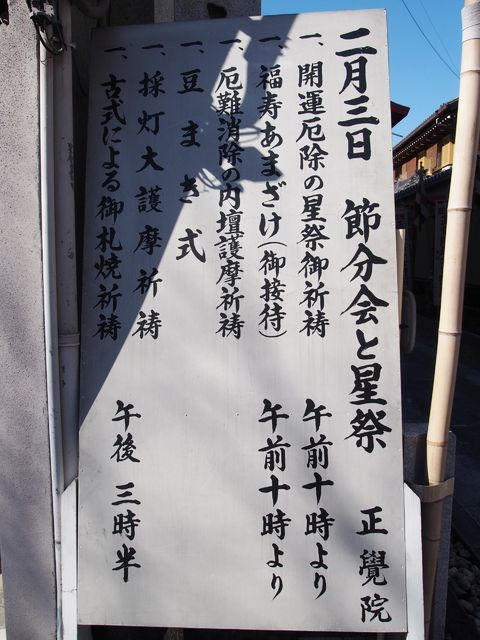 二月三日 節分会と星祭 正覺院
一、開運厄除の星祭御祈祷 午前十時より
一、福寿あまざけ(御接待) 午前十時より
一、厄難消除の内壇護摩祈祷
一、豆まき式
一、採灯大護摩祈祷
一、古式による御札焼祈祷 午後三時半